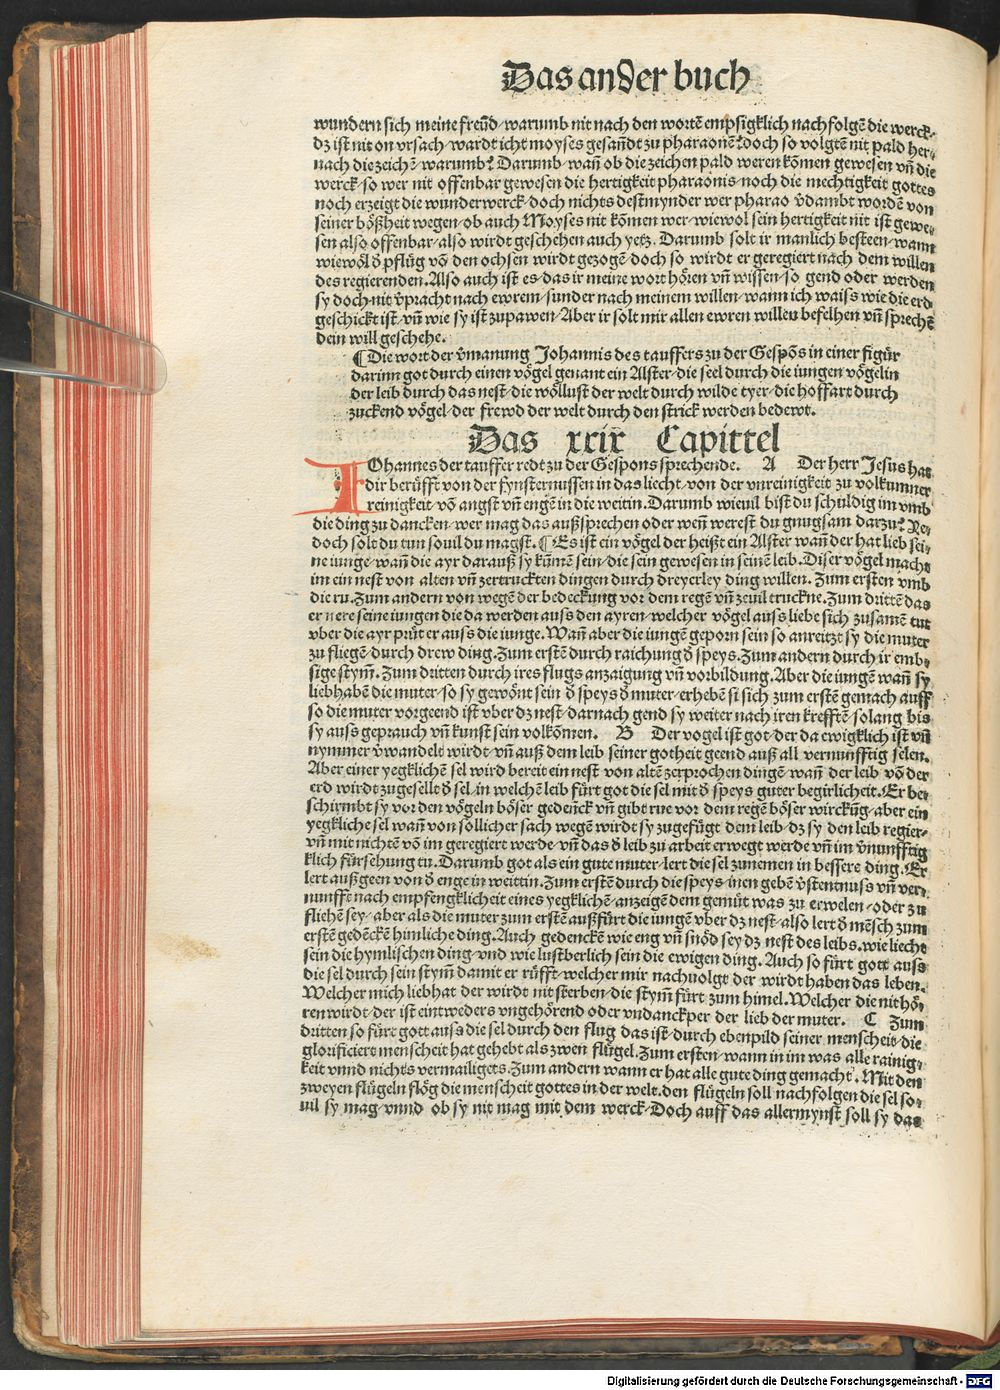 Das ander buch
wundern sich meine freūd/warumb nit nach den wortē empsigklich nachfolgē die werck.
dz ist nit on vrsach/wardt icht moyses gesāndt zu pharaonē? doch so volgtēn nit pald her/
nach die zeichē/warumb? Darumb/wañ ob die zeichen pald weren kōmen gewesen vñ die
werck/so wer nit offenbar gewesen die hertigkeit pharaōnis/noch die mechtigkeit gottes
noch erzeigt die wunderwerck/doch nichts destmynder wer pharao v̄dambt wordē von
seiner böszheit wegen/ob auch Moyses nit kōmen wer/wiewol sein hertigkeit nit ist gewe/
sen also offenbar/also wirdt geschehen auch yetz. Darumb solt ir manlich besteen/wann
wiewöl d̄ pflüg vō den ochsen wirdt gezogē/doch so wirdt er geregiert nach dem willen
des regierenden. Also auch ist es/das ir meine wort hören vñ wissen/so gend oder werden
sy doch nit v̄pracht nach ewrem/sunder nach meinem willen/wann ich waiss wie die erd
geschickt ist/vñ wie sy ist zupawen/Aber ir solt mir allen ewren willen befelhen vñ sprechē
dein will geschehe.
¶ Die wort der v̄manung Johannis des tauffers zu der Gespōs in einer figūr
darinn got durch einen vögel genant ein Alster/die seel durch die iungen vögelin
der leib durch das nest/die wöllust der welt durch wilde tyer/die hoffart durch
zuckend vögel/der frewd der welt durch den strick werden bedewt.
Das xxix Capittel
IOhannes der tauffer redt zu der Gespons sprechende. A Der herr Jesus hat
dir berüfft von der fynsternussen in das liecht/von der vnreinigkeit zu volkumner
reinigkeit/vō angst vñ engē in die weitin. Darumb wieuil bist du schuldig im vmb
die ding zu dancken/wer mag das außsprechen oder weñ werest du gnugsam darzu? Ye/
doch solt du tun souil du magst. ¶ Es ist ein vögel der heißt ein Alster wañ der hat lieb sei/
ne iunge/wañ die ayr darauß sy kūmē sein/die sein gewesen in seinē leib. Diser vögel macht
im ein nest von alten vñ zertruckten dingen durch dreyerley ding willen. Zum ersten vmb
die ru. Zum andern von wegē der bedeckung vor dem regē vñ zeuil truckne. Zum drittē das
er nere seine iungen die da werden auss den ayren/welcher vögel auss liebe sich zusamē tut
vber die ayr prüt er auss die iunge. Wañ aber die iungē geporn sein so anreitzt sy die muter
zu fliegē/durch drew ding. Zum erstē durch raichung d̄ speys. Zum andern durch ir emb/
sige stym̄. Zum dritten durch ires flugs anzaigung vñ vorbildung. Aber die iungē wañ sy
liebhabē die muter/so sy gewönt sein d̄ speys d̄ muter/erhebē si sich zum erstē gemach auff
so die muter vorgeend ist vber dz nest/darnach gend sy weiter nach iren krefftē/solang bis
sy auss geprauch vñ kunst sein volkōmen. B Der vogel ist got/der da ewigklich ist vñ
nymmer v̄wandelt wirdt/vñ auß dem leib seiner gotheit geend auß all vernunfftig selen.
Aber einer yegklichē sel wird bereit ein nest von altē zerprochen dingē/wañ der leib vō der
erd wirdt zugesellt d̄ sel/in welchē leib fürt got die sel mit d̄ speys guter begirlicheit. Er be/
schirmbt sy vor den vögeln böser gedenck vñ gibt rue vor dem regē böser wirckūg/aber ein
yegkliche sel wañ von sollicher sach wegē wirdt sy zugefügt dem leib/dz sy den leib regier/
vñ mit nichtē vō im geregiert werde/vñ das d̄ leib zu arbeit erwegt werde vñ im v̄nunfftig
klich fürsehung tu. Darumb got als ein gute muter/lert die sel zunemen in bessere ding. Er
lert außgeen von d̄ enge in weittin. Zum erstē durch die speys/inen gebē v̄stentnuss vñ ver/
nunfft nach empfengklicheit eines yegklichē/anzeigē dem gemüt was zu erwelen/oder zu
fliehē sey/aber als die muter zum erstē außfürt die iungē vber dz nest/also lert d̄ mēsch zum
erstē gedēckē himliche ding. Auch gedenckē wie eng vñ snöd sey dz nest des leibs/wie liecht
sein die hymlischen ding/vnd wie lustberlich sein die ewigen ding. Auch so fürt gott auss
die sel durch sein stym̄ damit er rüfft/welcher mir nachuolgt der wirdt haben das leben.
Welcher mich liebhat der wirdt nit sterben/die stym̄ fürt zum himel. Welcher die nit hö/
ren wirdt/der ist eintweders vngehörend oder vndanckper der lieb der muter. C Zum
dritten so fürt gott auss die sel durch den flug/das ist/durch ebenpild seiner menscheit/die
glorificiert menscheit hat gehebt als zwen flügel. Zum ersten/wann in im was alle rainig/
keit vnnd nichts vermailigets. Zum andern wann er hat alle gute ding gemacht. Mit den
zweyen flügeln flög die menscheit gottes in der welt/den flügeln soll nachfolgen die sel so/
uil sy mag/vnnd ob sy nit mag mit dem werck/Doch auff das allermynst soll sy das
Digitalisierung gefördert durch die Deutsche Forschungsgemeinschaft - DFG